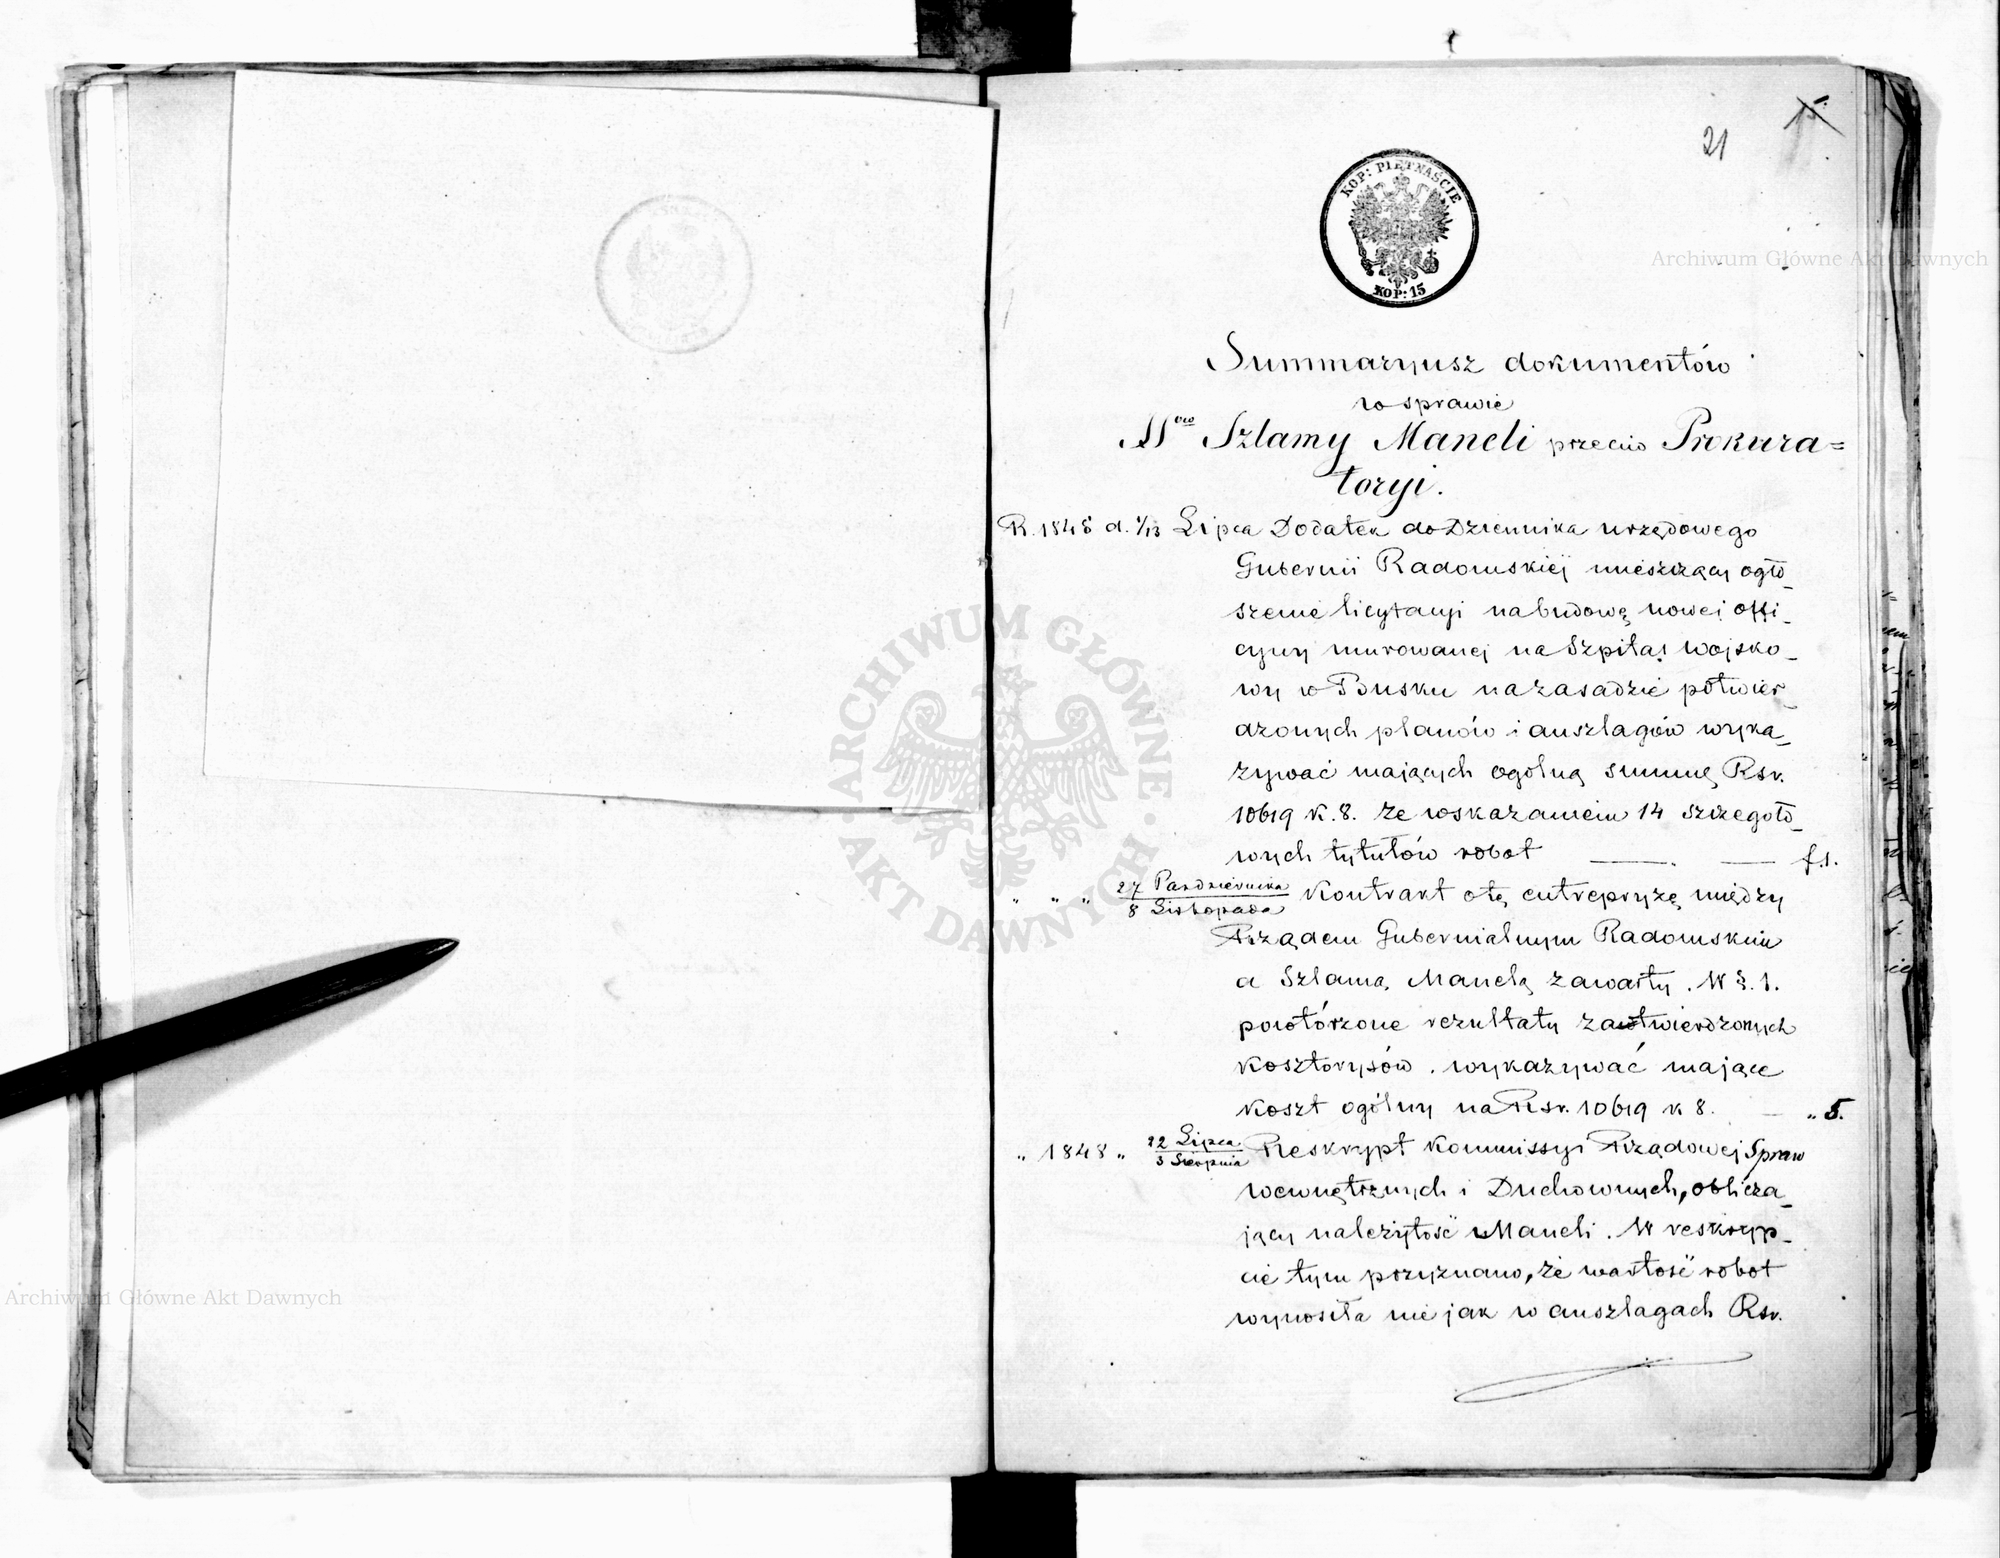 21
15
KOP: PIĘTNAŚCIE
KOP: 15
Summaryusz dokumentów
w sprawie
Szlamy Maneli przeciw Prokura=
toryi.
R. 1845 d. 1/13 Lipca Dodatek do Dziennika urzędowego
Gubernii Radomskiéj mieszczący ogło_
szenie licytacyi na budowę nowéj offi_
cyny murowanej na Szpital wojsko_
wy w Busku na zasadzie potwier_
dzonych planów i anszlagów wyka_
zywać mających ogólną summę Rsr.
10619 k. 8. ze wskazaniem 14 szczegóło_
wych tytułów robot f. 1.
" " " 27 Października / 8 Listopada Kontrakt o tę entrepryzę między
Rządem Gubernialnym Radomskim
a Szlamą Manelą zawarty. W §. 1.
powtórzone rezultaty zatwierdzonych
kosztorysów. wykazywać mające
koszt ogólny na Rsr. 10619 k 8. " 5.
" 1848 " 22 Lipca / 3 Sierpnia Reskrypt Kommissyi Rządowej Spraw
wewnętrznych i Duchownych, oblicza_
jący należytość Maneli. W reskryp_
cie tym przyznano, że wartość robot
wynosiła nie jak w anszlagach Rsr.
ARCHIWUM GŁÓWNE AKT DAWNYCH
Archiwum Główne Akt Dawnych
Archiwum Główne Akt Dawnych